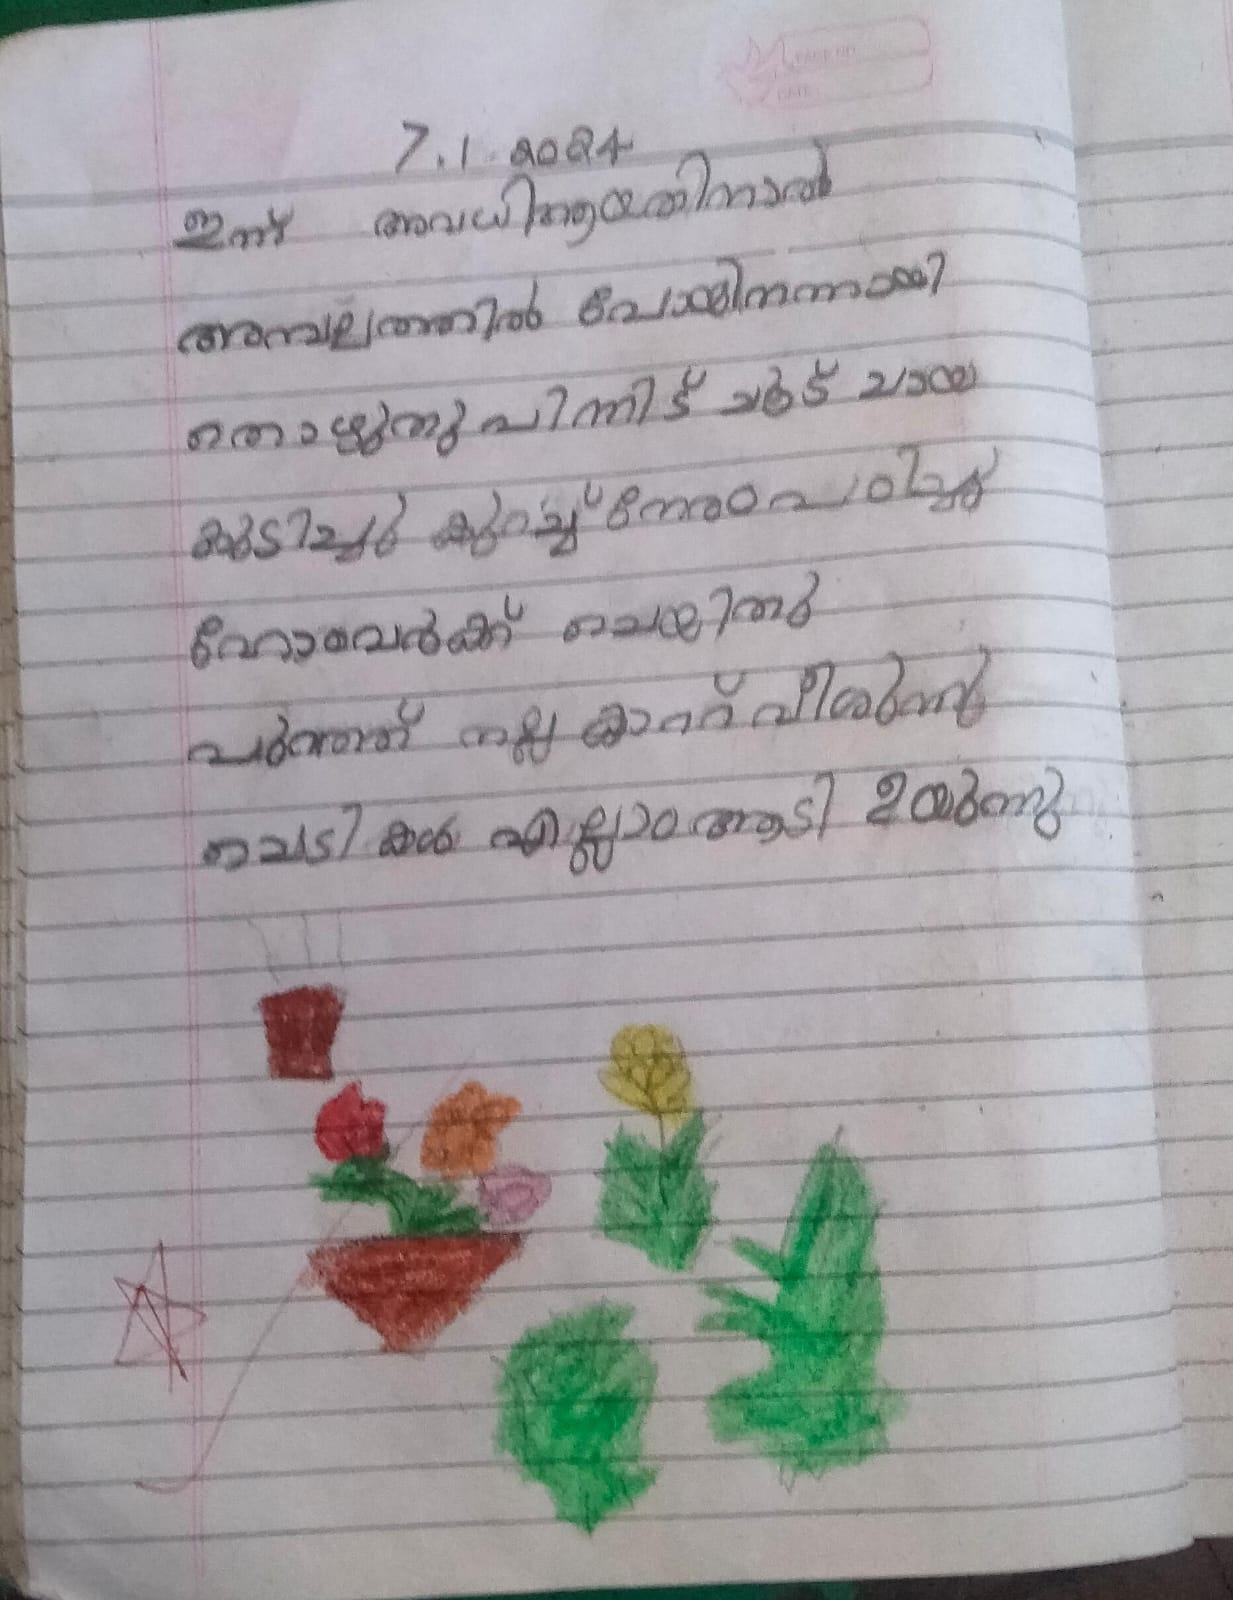 7.1.2024
ഇന്ന് അവധിആയതിനാൽ
അമ്പലത്തിൽ പോയിനന്നായി
തൊഴുതു പിന്നിട് ചുട് ചായ
കുടിച്ചു കുറച്ച് നേരം പഠിച്ചു
ഹോംവർക്ക് ചെയ്തു
പുറത്ത് നല്ല കാറ്റ് വീശുന്നു
ചെടികൾ എല്ലാം ആടി ഉയുന്നു